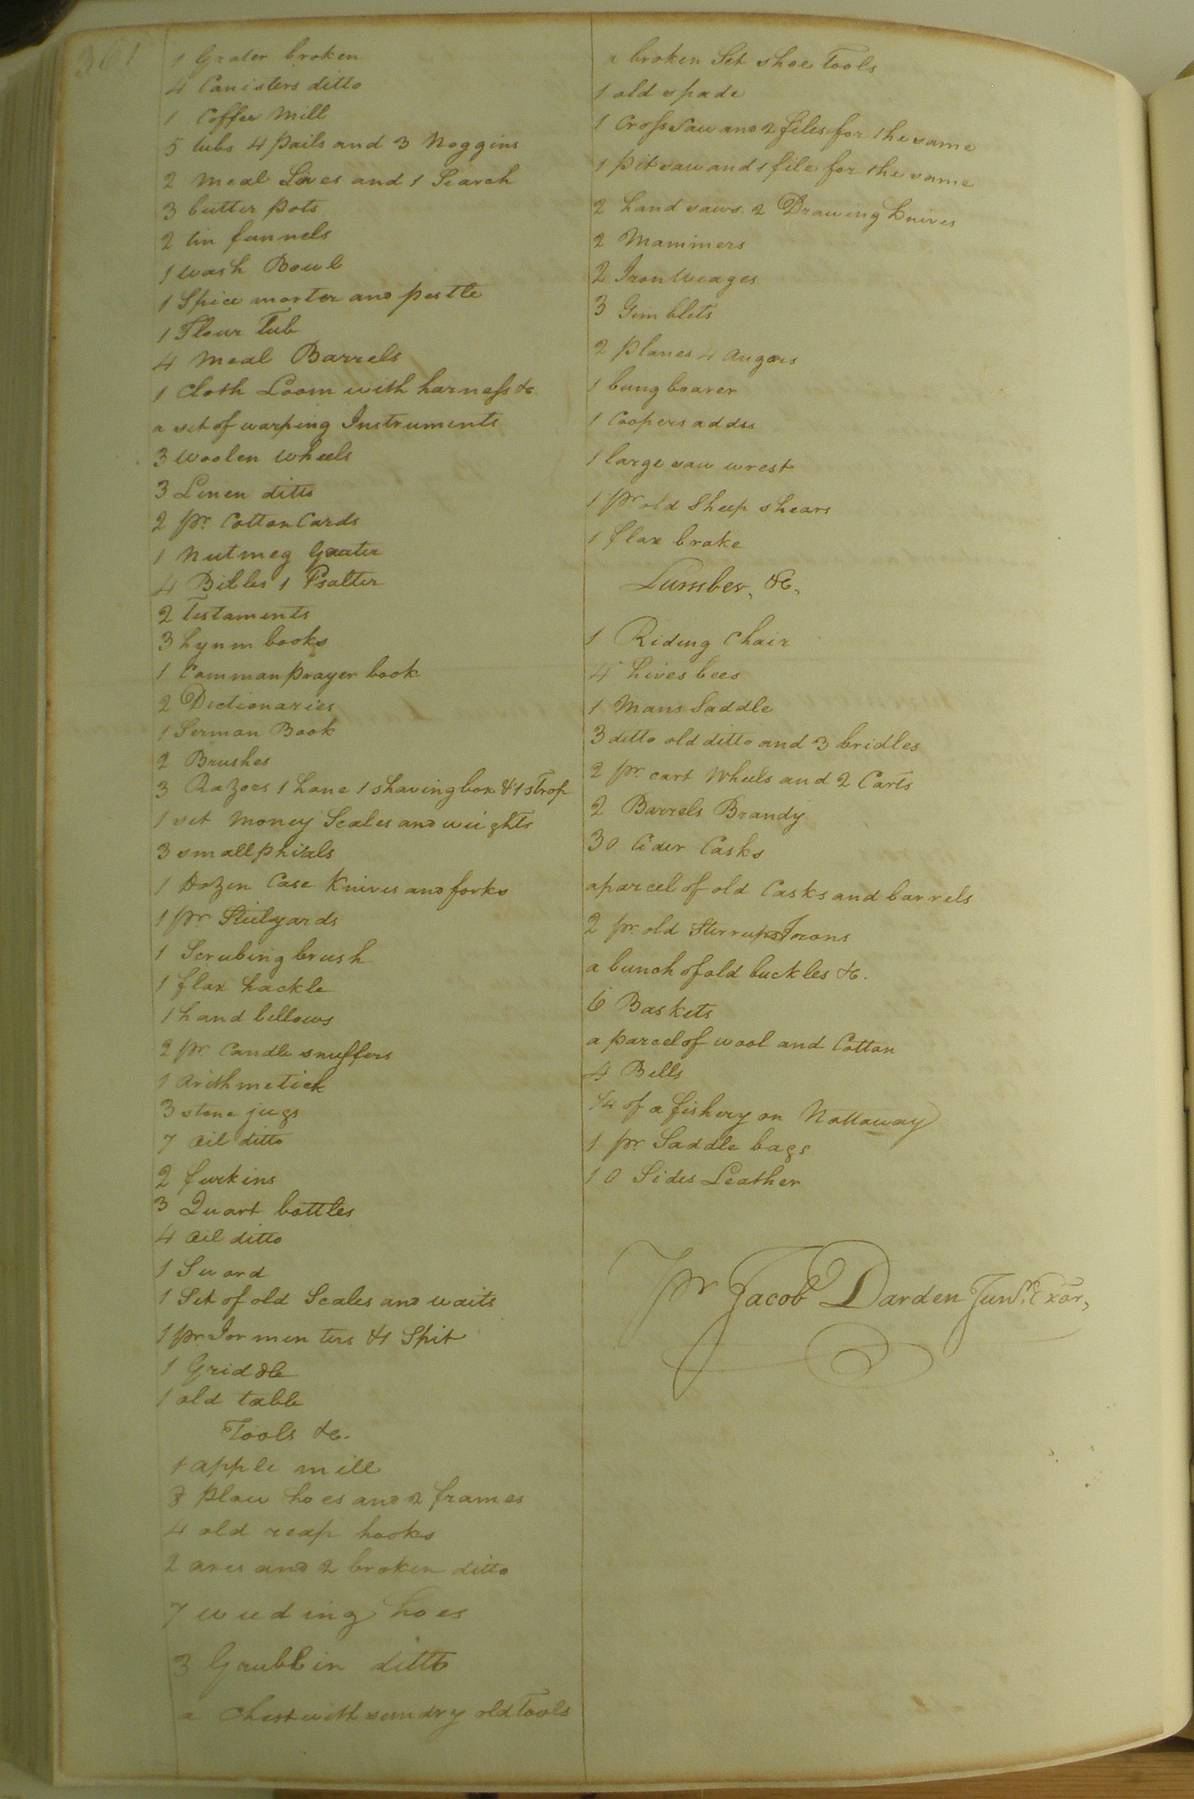 361
1 Grater broken
4 Canisters ditto
1 Coffee Mill
5 tubs 4 Pails and 3 Noggins
2 Meal Sives and 1 Search
3 butter Pots
2 tin funnels
1 wash Bowl
1 Spice morter and pestle
1 Flour Tub
4 Meal Barrels
1 Cloth Loom with harness &c
a set of warping Instruments
3 Woolen Wheels
3 Linen ditto
2 pr. Cotton Cards
1 Nutmeg Grater
4 Bibles 1 Psalter
2 Testaments
3 hymn books
1 Common prayer book
2 Dictionaries
1 Sermon Book
2 Brushes
3 Razors 1 hone 1 shaving box & 1 strop
1 set Money Scales and weights
3 small phials
1 Dozen Case Knives and forks
1 pr Stilyards
1 Scrubing brush
1 flax hackle
1 hand bellows
2 pr. Candle snuffers
1 Arithmetick
3 stone jugs
7 oil ditto
2 furkins
3 Quart bottles
4 oil ditto
1 Sword
1 Set of old Scales and waits
1 pr Tormenters & 1 Spit
1 Griddle
1 old table
Tools &c.
1 apple mill
8 Plow hoes and 2 frames
4 old reap hooks
2 axes and 2 broken ditto
7 weeding hoes
3 Grubbin ditto
a Chest with sundry old Tools
a broken Set shoe Tools
1 old spade
1 Cross saw and 2 files for the same
1 Pit saw and 1 file for the same
2 hand saws. 2 Drawing knives
2 Mammers
2 Iron Weages
3 Gimblets
2 planes 4 augers
1 bung boarer
1 Coopers adds
1 large saw wrest
1 pr old Sheep shears
1 flax brake
Lumber, &c.
1 Riding Chair
4 hives bees
1 Mans Saddle
3 ditto old ditto and 3 bridles
2 pr. cart Wheels and 2 Carts
2 Barrels Brandy
30 Cider Casks
a parcel of old Casks and barrels
2 pr. old Stirrups Irons
a bunch of old buckles &c.
6 Baskets
a parcel of wool and Cotton
4 Bells
1/4 of a fishery on Nottaway
1 pr. Saddle bags
10 Sides Leather
Pr Jacob Darden Junr. Exor,